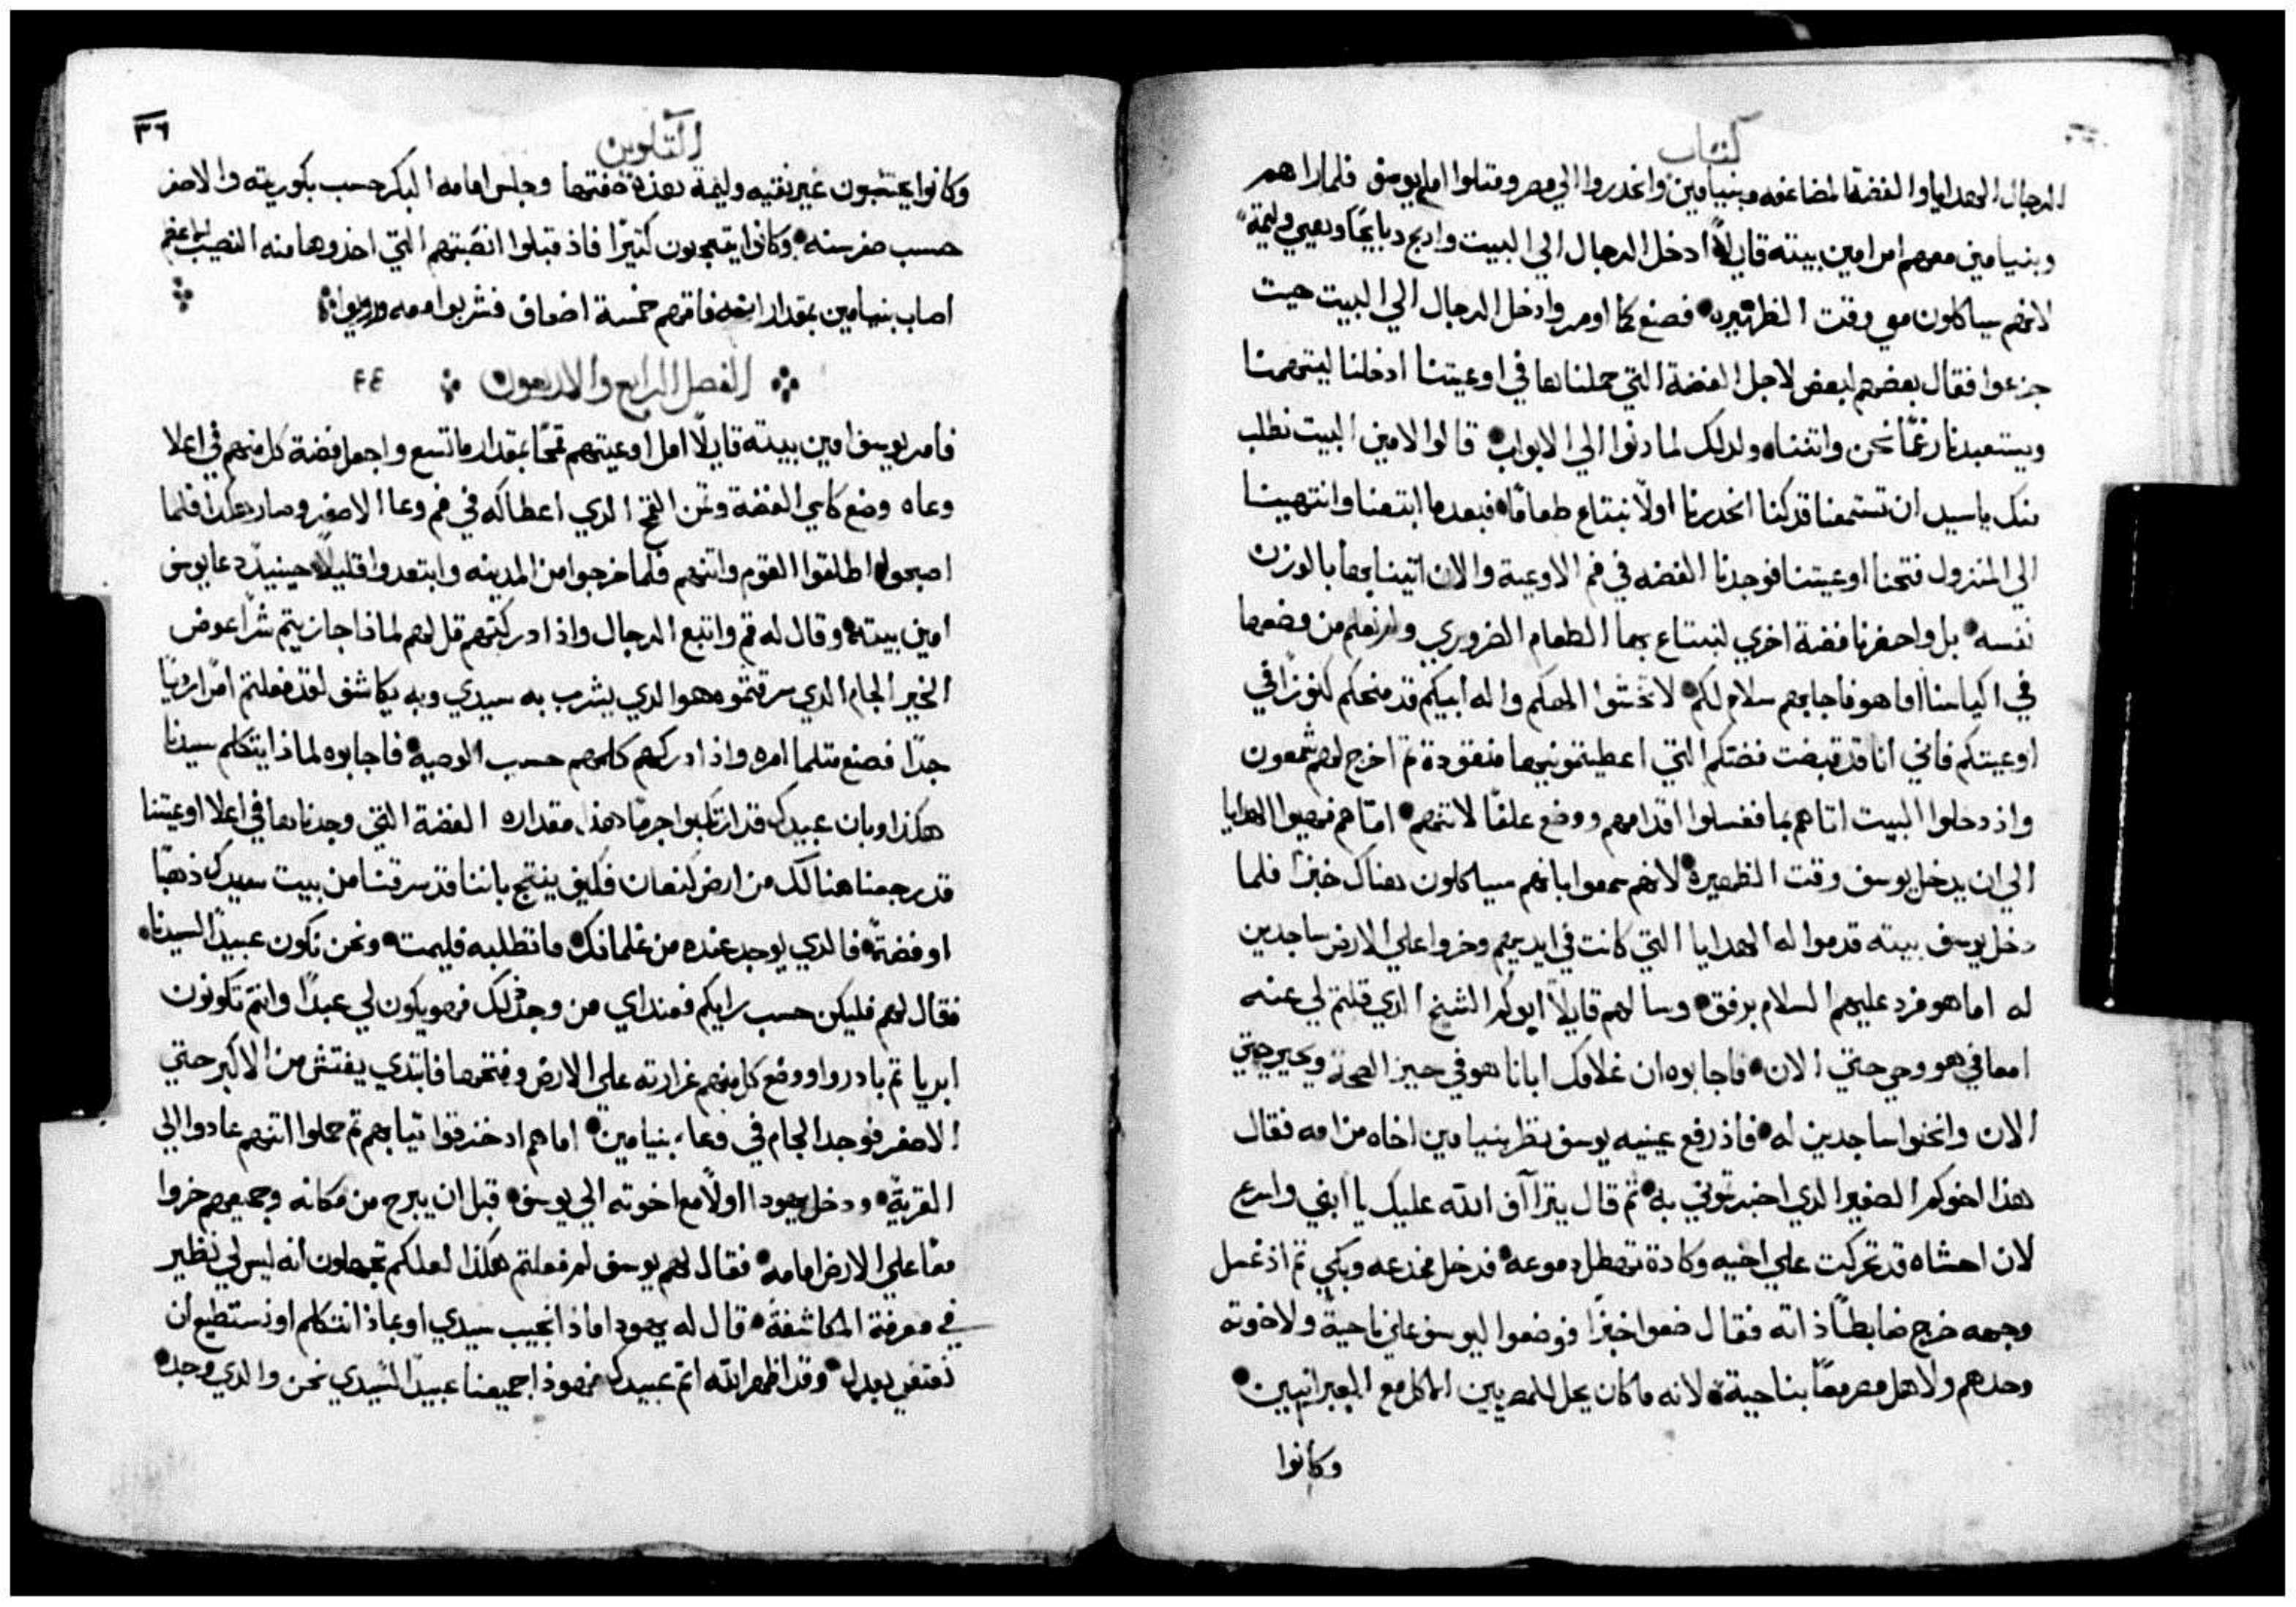 كتاب
الرجال الهدايا والفضة المضاعفه وبنيامين وانحدروا الي مصر ومتلوا امام يوسف فلما راهم
وبنيامين معهم امر امين بيته قايلاً ادخل الرجال الي البيت وادبح دبايحًا وهيي وليمة
لانهم سياكلون معي وقت الظهيره فصنع كما اومر وادخل الرجال الي البيت حيت
جزعوا فقال بعضهم لبعض لاجل الفضة التي حملناها في اوعيتنا ادخلنا ليتهمنا
ويستعبدنا رغمًا نحن واتننا ولدلك لما دنوا الي الابواب قالوا لامين البيت نطلب
منك ياسيد ان تستمعنا قد كنا انحدرنا اولاً نبتاع طعامًا فبعدما ابتعنا وانتهينا
الي المنزول فتحنا اوعيتنا فوجدنا الفضه في فم الاوعية والان اتينا بها بالوزن
نفسه بل واحضرنا فضة اخري لنبتاع بها الطعام الضروري ولم نعلم من وضعها
في اكياسنا اما هو فاجابهم سلام لكم لا تخشوا الهكم واله ابيكم قد منحكم كنوزًا في
اوعيتكم فاني انا قد قبضت فضتكم التي اعطيتمونيها منقودة تم اخرج لهم شمعون
واذ دخلوا البيت اتاهم بما فغسلوا اقدامهم ووضع علفًا لاتنهم اما هم فهيوا الهدايا
الي ان يدخل يوسف وقت الظهيرة لانهم سمعوا بانهم سياكلون هناك خبزًا فلما
دخل يوسف بيته قدموا له الهدايا التي كانت في ايديهم وخروا علي الارض ساجدين
له اما هو فرد عليهم السلام برفق وسالهم قايلاً ابوكم الشيخ الدي قلتم لي عنه
امعافي هو وحي حتي الان فاجابوه ان غلامك ابانا هو في حيز الصحة وحي حتي
الان وانحنوا ساجدين له فاذ رفع عينيه يوسف نظر بنيامين اخاه من امه فقال
هذا اخوكم الصغير الدي اخبرتموني به تم قال يتراآف الله عليك يا ابني واسرع
لان احشاه قد تحركت علي اخيه وكادة تهطل دموعه فدخل مخدعه وبكي تم اذ غسل
وجهه خرج ضابطًا ذاته فقال ضعوا خبزًا فوضعوا ليوسف علي ناحية ولاخوته
وحدهم ولاهل مصر معًا بناحية لانه ما كان يحل للمصريين الاكل مع العبرانيين
وكانوا
التكوين
٣٦
وكانوا يحتسبون غير نقيه وليمة هذه صفتها وجلس امامه البكر حسب بكوريته والاصغر
حسب صغر سنه وكانوا يتعجبون كتيرًا فاذ قبلوا انصبتهم التي اخذوها منه النصيب الاعظم
اصاب بنيامين بمقدار انه فاقهم خمسة اضعاف فشربوا معه ورويوا
الفصل الرابع والاربعون ٤٤
فامر يوسف امين بيته قايلاً املا اوعيتهم قمحًا بمقدار ما تسع واجعل فضة كل منهم في اعلا
وعاه وضع كاسي الفضة وتمن القمح الدي اعطاكه في فم وعا الاصغر وصار هكدا فلما
اصبحوا اطلقوا القوم واتنهم فلما خرجوا من المدينه وابتعدوا قليلاً حينيدٍ دعا يوسف
امين بيته وقال له قم واتبع الرجال واذا ادركتهم قل لهم لماذا جازيتم شرًا عوض
الخير الجام الدي سرقتموه هو الدي يشرب به سيدي وبه يكاشف لقد فعلتم امرًا رديًا
جدًا فصنع متلما امره واذ ادركهم كلمهم حسب الوصية فاجابوه لماذا يتكلم سيدنا
هكذا وبان عبيدك قد ارتكبوا جرمًا هذا مقداره الفضة التي وجدناها في اعلا اوعيتنا
قد رجعنا هنالك من ارض كنعان فكيف ينتج باننا قد سرقنا من بيت سيدك ذهبًا
او فضةً فالدي يوجد عنده من غلمانك ما تطلبه فليمت ونحن نكون عبيدًا لسيدنا
فقال لهم فليكن حسب رايكم فعنداي من وجد دلك فهو يكون لي عبدًا وانتم تكونون
ابريا تم بادروا ووضع كل منهم غرارته علي الارض وفتحها فابتدي يفتش من الاكبر حتي
الاصغر فوجد الجام في وعاء بنيامين اما هم اد خزقوا تيابهم تم حملوا اتنهم عادوا الي
القرية ودخل يهودا اولاً مع اخوته الي يوسف قبل ان يبرح من مكانه وجميعهم خروا
معًا علي الارض امامه فقال لهم يوسف لم فعلتم هكذا لعلكم تجهلون انه ليس لي نظير
في معرفة المكاشفة قال له يهودا ماذا نجيب سيدي او بماذا نتكلم او نستطيع ان
نعتفي بعدل وقد اظهر الله اتم عبيدك فهوذا جميعنا عبيدًا لسيدي نحن والدي وجد